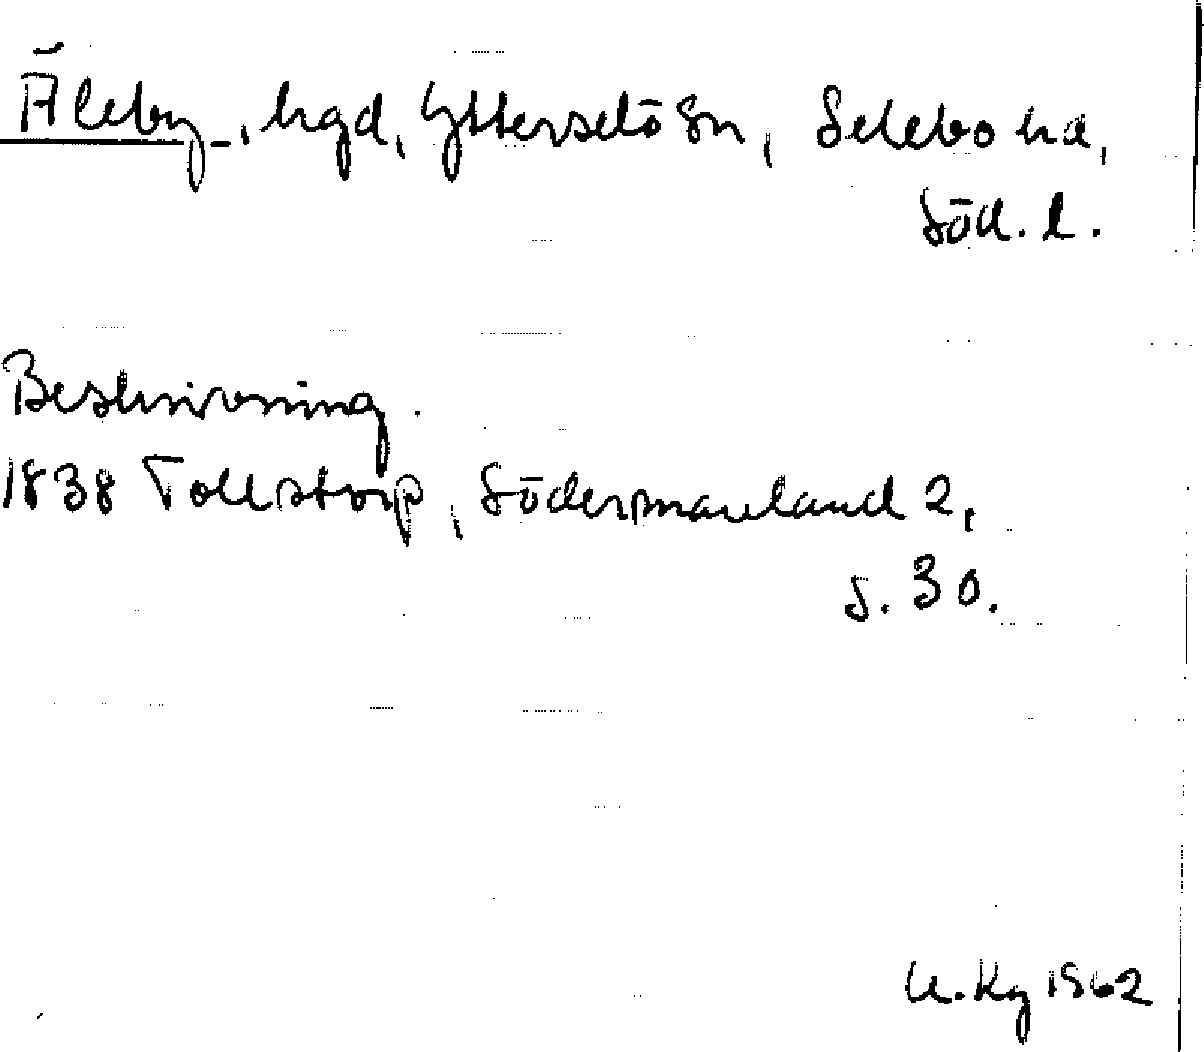 Äleby, hgd, Ytterselö sn, Selebo hd,
Söd. l.
Beskrivning.
1838 Tollstorp, Södermanland 2,
s. 30.
U. Kg 1962